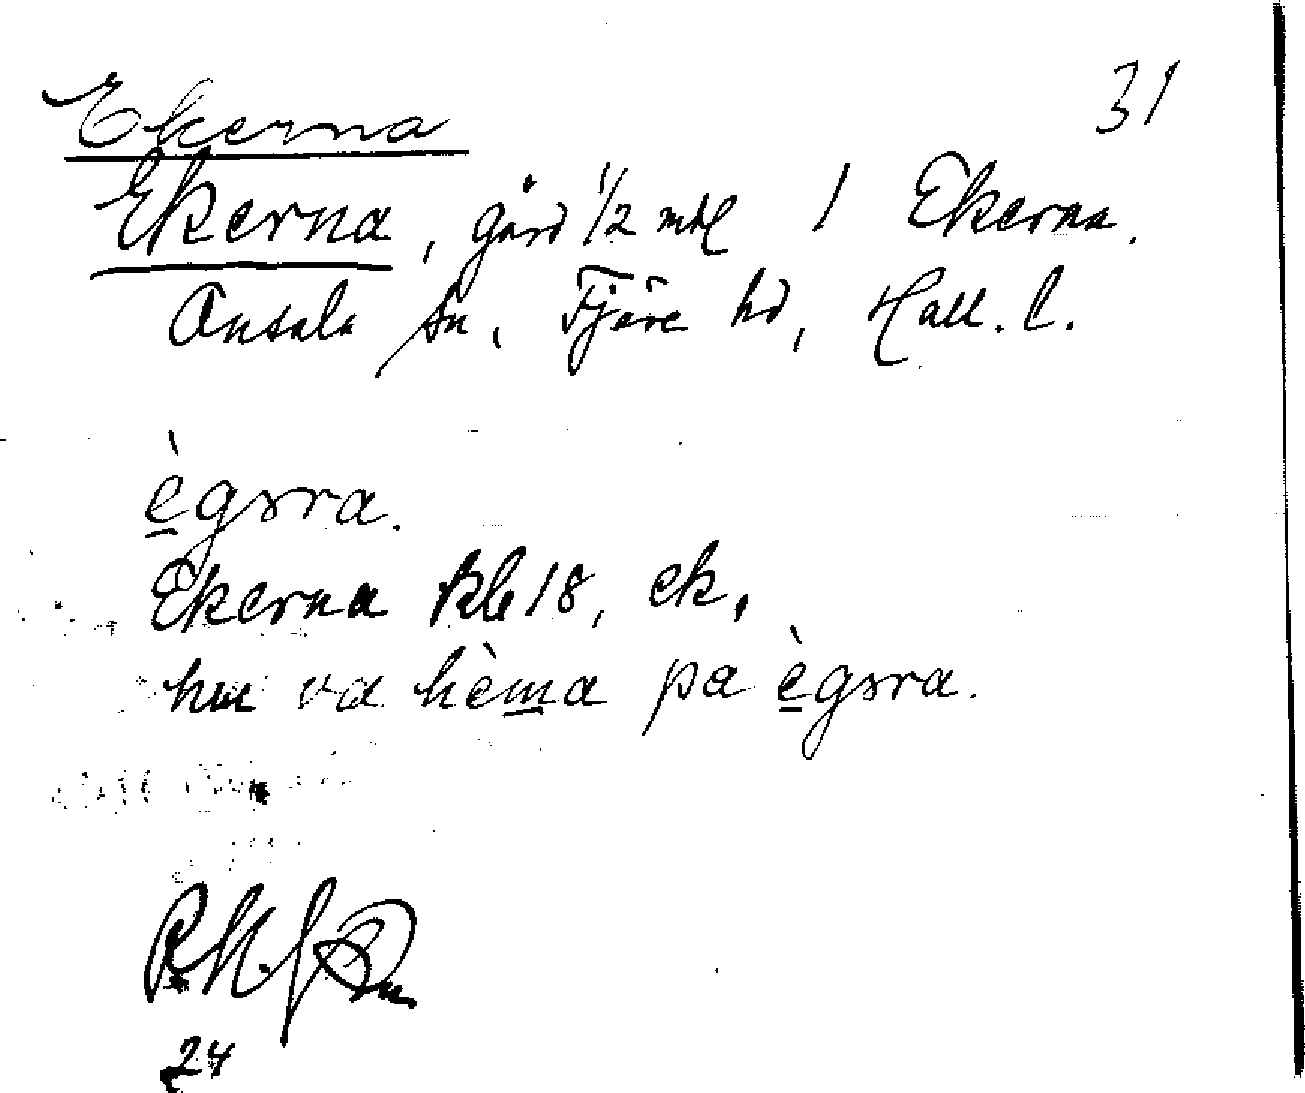 31
Ekerna
Ekerna, gård 1/2 mtl 1 Ekerna.
Onsala sn, Fjäre hd, Hall. l.
ègsra.
Ekerna kb 18, ek.
hu va hèma pa ègsra.
24